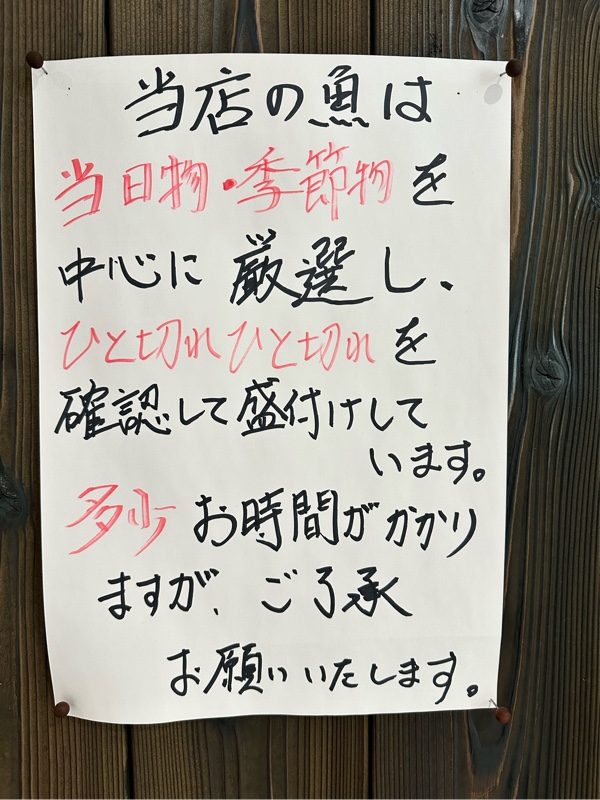 当店の魚は
当日物・季節物を
中心に厳選し、
ひと切れひと切れを
確認して盛付けして
います。
多少お時間がかかり
ますが、ご了承
お願いいたします。